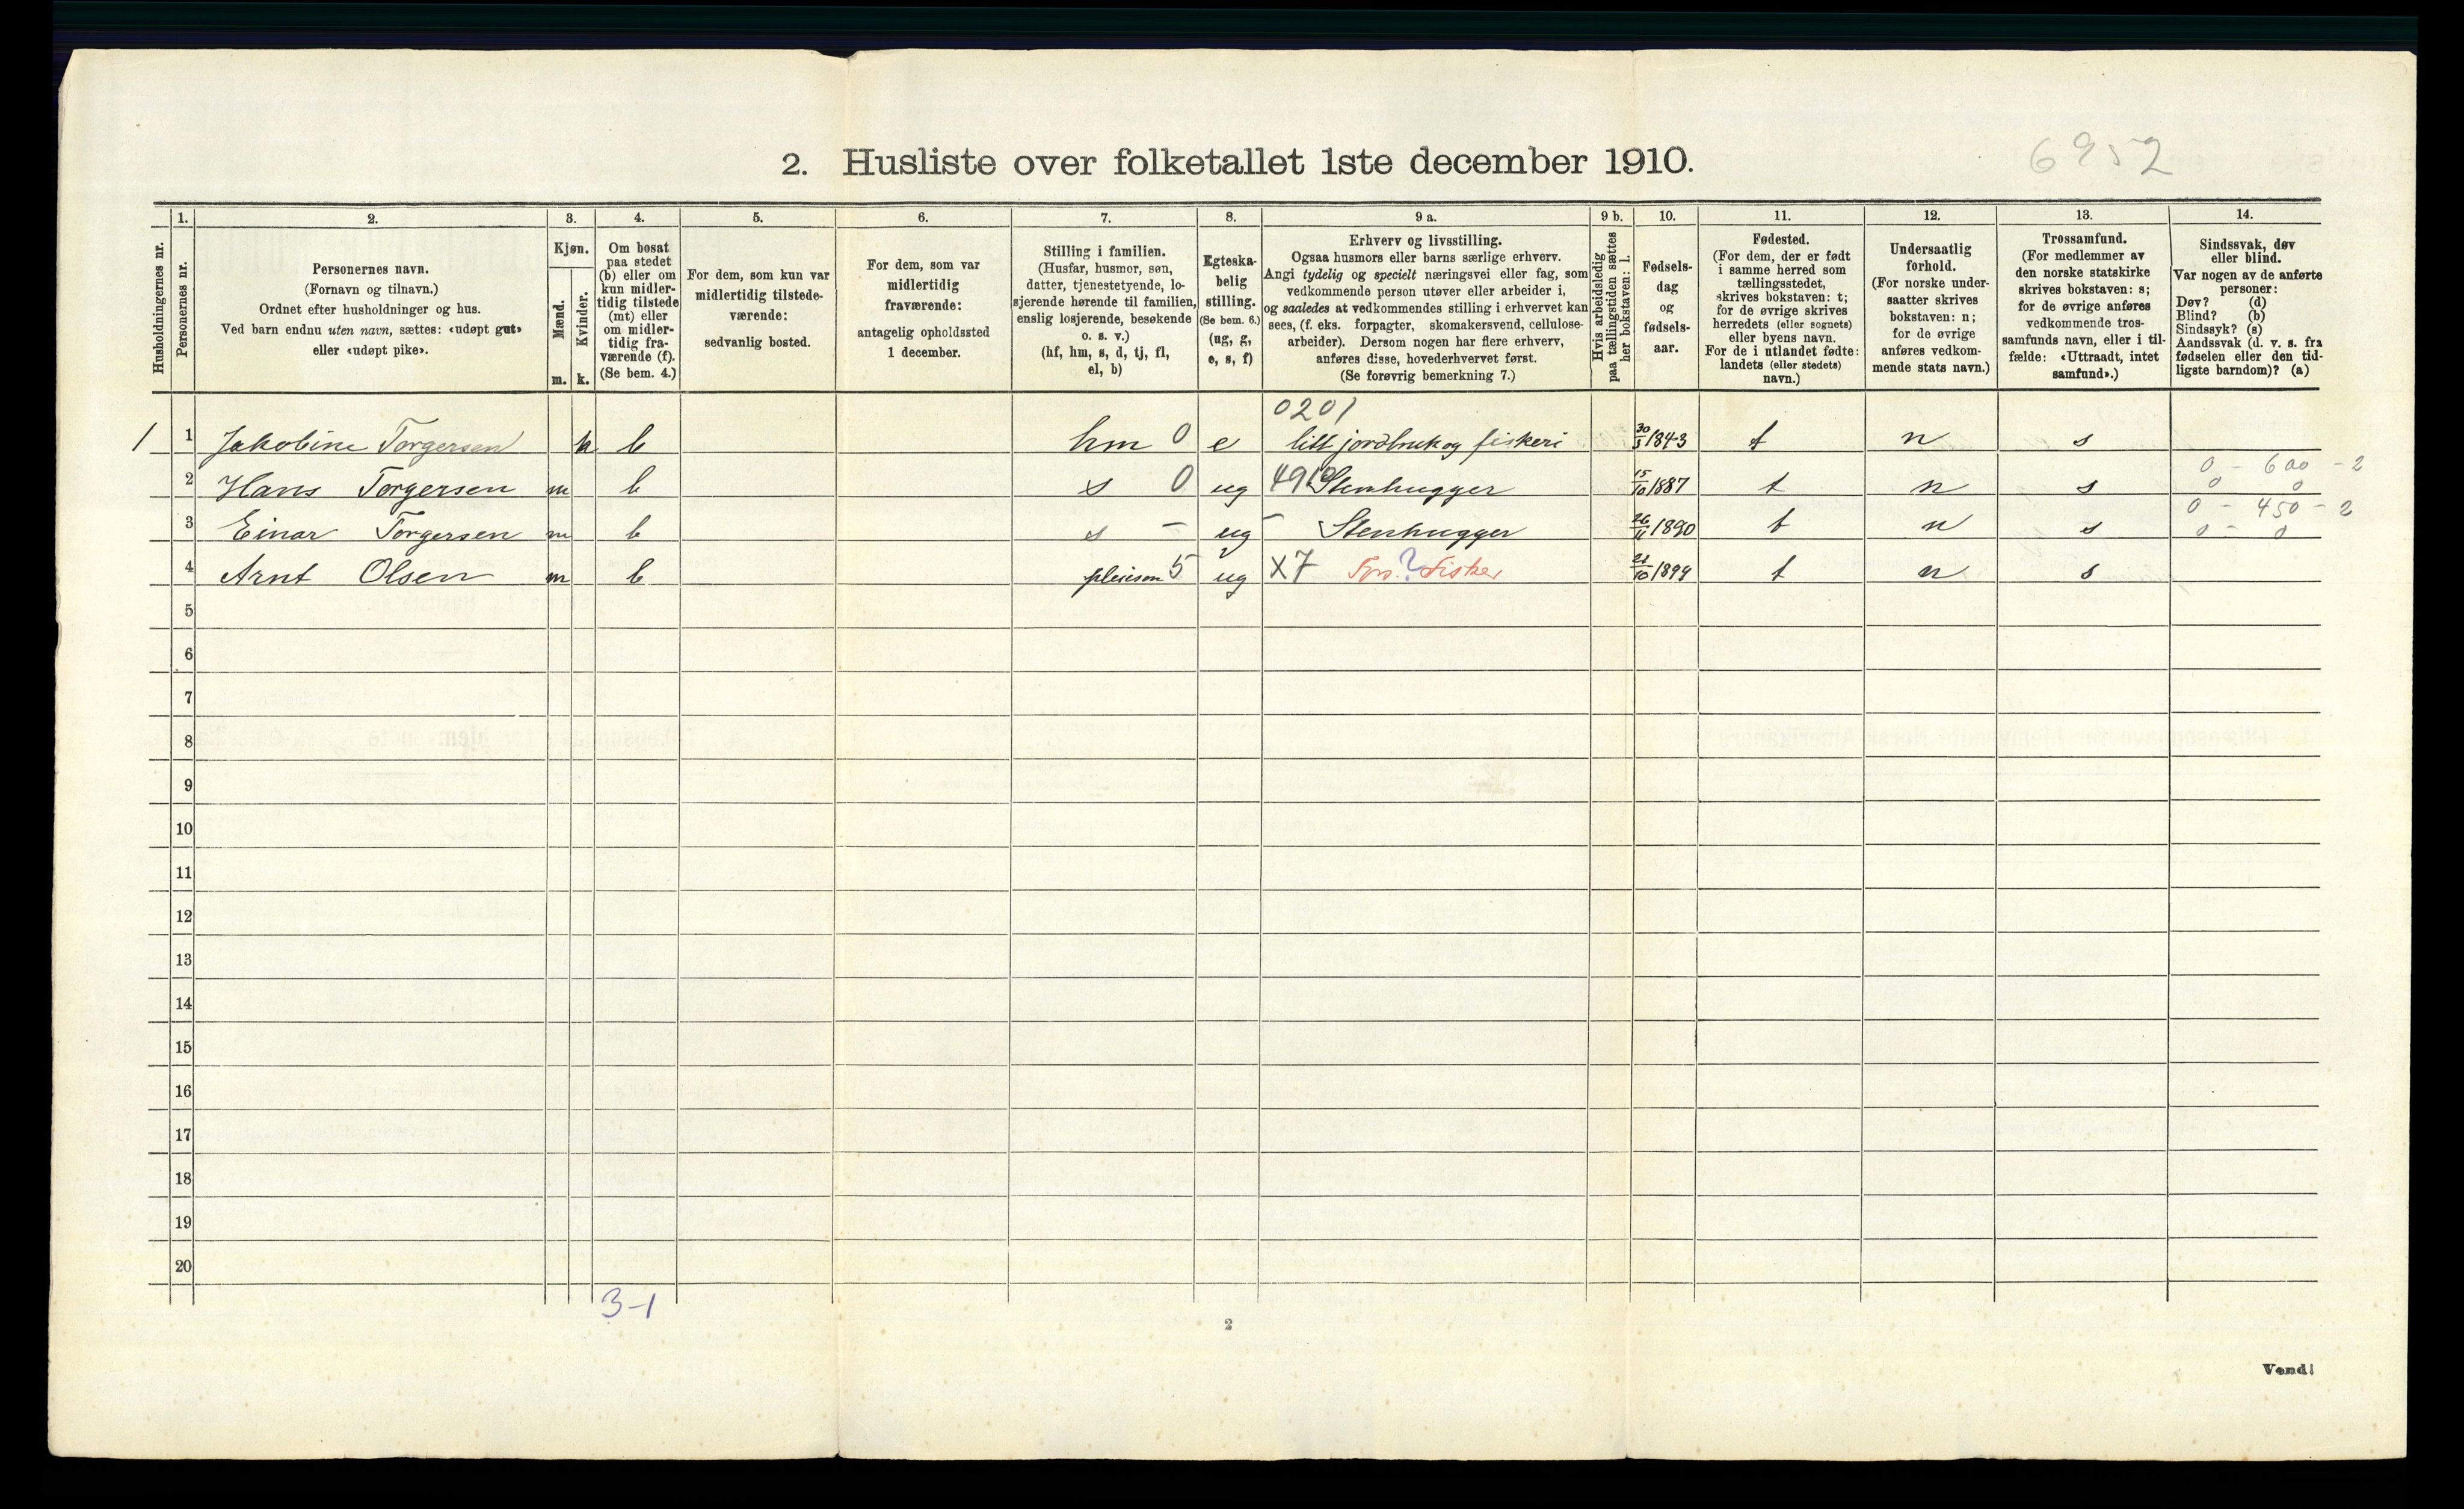 6952
2. Husliste over folketallet 1ste december 1910.
1. 2. 3. 4. 5. 6. 7. 8. 9 a. 9 b. 10. 11. 12. 13. 14.
Husholdningernes nr.
Personernes nr.
Personernes navn.
(Fornavn og tilnavn.)
Ordnet efter husholdninger og hus.
Ved barn endnu uten navn, sættes: «udøpt gut»
eller «udøpt pike».
Kjøn.
Mænd.
Kvinder.
m. k.
Om bosat
paa stedet
(b) eller om
kun midler-
tidig tilstede
(mt) eller
om midler-
tidig fra-
værende (f).
(Se bem. 4.)
For dem, som kun var
midlertidig tilstede-
værende:
sedvanlig bosted.
For dem, som var
midlertidig
fraværende:
antagelig opholdssted
1 december.
Stilling i familien.
(Husfar, husmor, søn,
datter, tjenestetyende, lo-
sjerende hørende til familien,
enslig losjerende, besøkende
o. s. v.)
(hf, hm, s, d, tj, fl,
el, b)
Egteska-
belig
stilling.
(Se bem. 6.)
(ug, g,
e, s, f)
Erhverv og livsstilling.
Ogsaa husmors eller barns særlige erhverv.
Angi tydelig og specielt næringsvei eller fag, som
vedkommende person utøver eller arbeider i,
og saaledes at vedkommendes stilling i erhvervet kan
sees, (f. eks. forpagter, skomakersvend, cellulose-
arbeider). Dersom nogen har flere erhverv,
anføres disse, hovederhvervet først.
(Se forøvrig bemerkning 7.)
Hvis arbeidsledig
paa tællingstiden sættes
her bokstaven: l.
Fødsels-
dag
og
fødsels-
aar.
Fødested.
(For dem, der er født
i samme herred som
tællingsstedet,
skrives bokstaven: t;
for de øvrige skrives
herredets (eller sognets)
eller byens navn.
For de i utlandet fødte:
landets (eller stedets)
navn.)
Undersaatlig
forhold.
(For norske under-
saatter skrives
bokstaven: n;
for de øvrige
anføres vedkom-
mende stats navn.)
Trossamfund.
(For medlemmer av
den norske statskirke
skrives bokstaven: s;
for de øvrige anføres
vedkommende tros-
samfunds navn, eller i til-
fælde: «Uttraadt, intet
samfund».)
Sindssvak, døv
eller blind.
Var nogen av de anførte
personer:
Døv? (d)
Blind? (b)
Sindssyk? (s)
Aandssvak (d. v. s. fra
fødselen eller den tid-
ligste barndom)? (a)
0201
1 1 Jakobine Torgersen k b hm 0 e litt jordbruk og fiskeri 30/5 1843 t n s
0 - 600 - 2
2 Hans Torgersen m b s 0 ug 4912 Stenhugger 15/10 1887 t n s 0 0
0 - 450 - 2
3 Einar Torgersen m b s - ug - Stenhugger 26/11 1890 t n s 0 - 0
4 Arnt Olsen m b pleiesøn 5 ug X7 Fors. ? Fisker 21/10 1894 t n s
5
6
7
8
9
10
11
12
13
14
15
16
17
18
19
20
3-1
2
Vend!